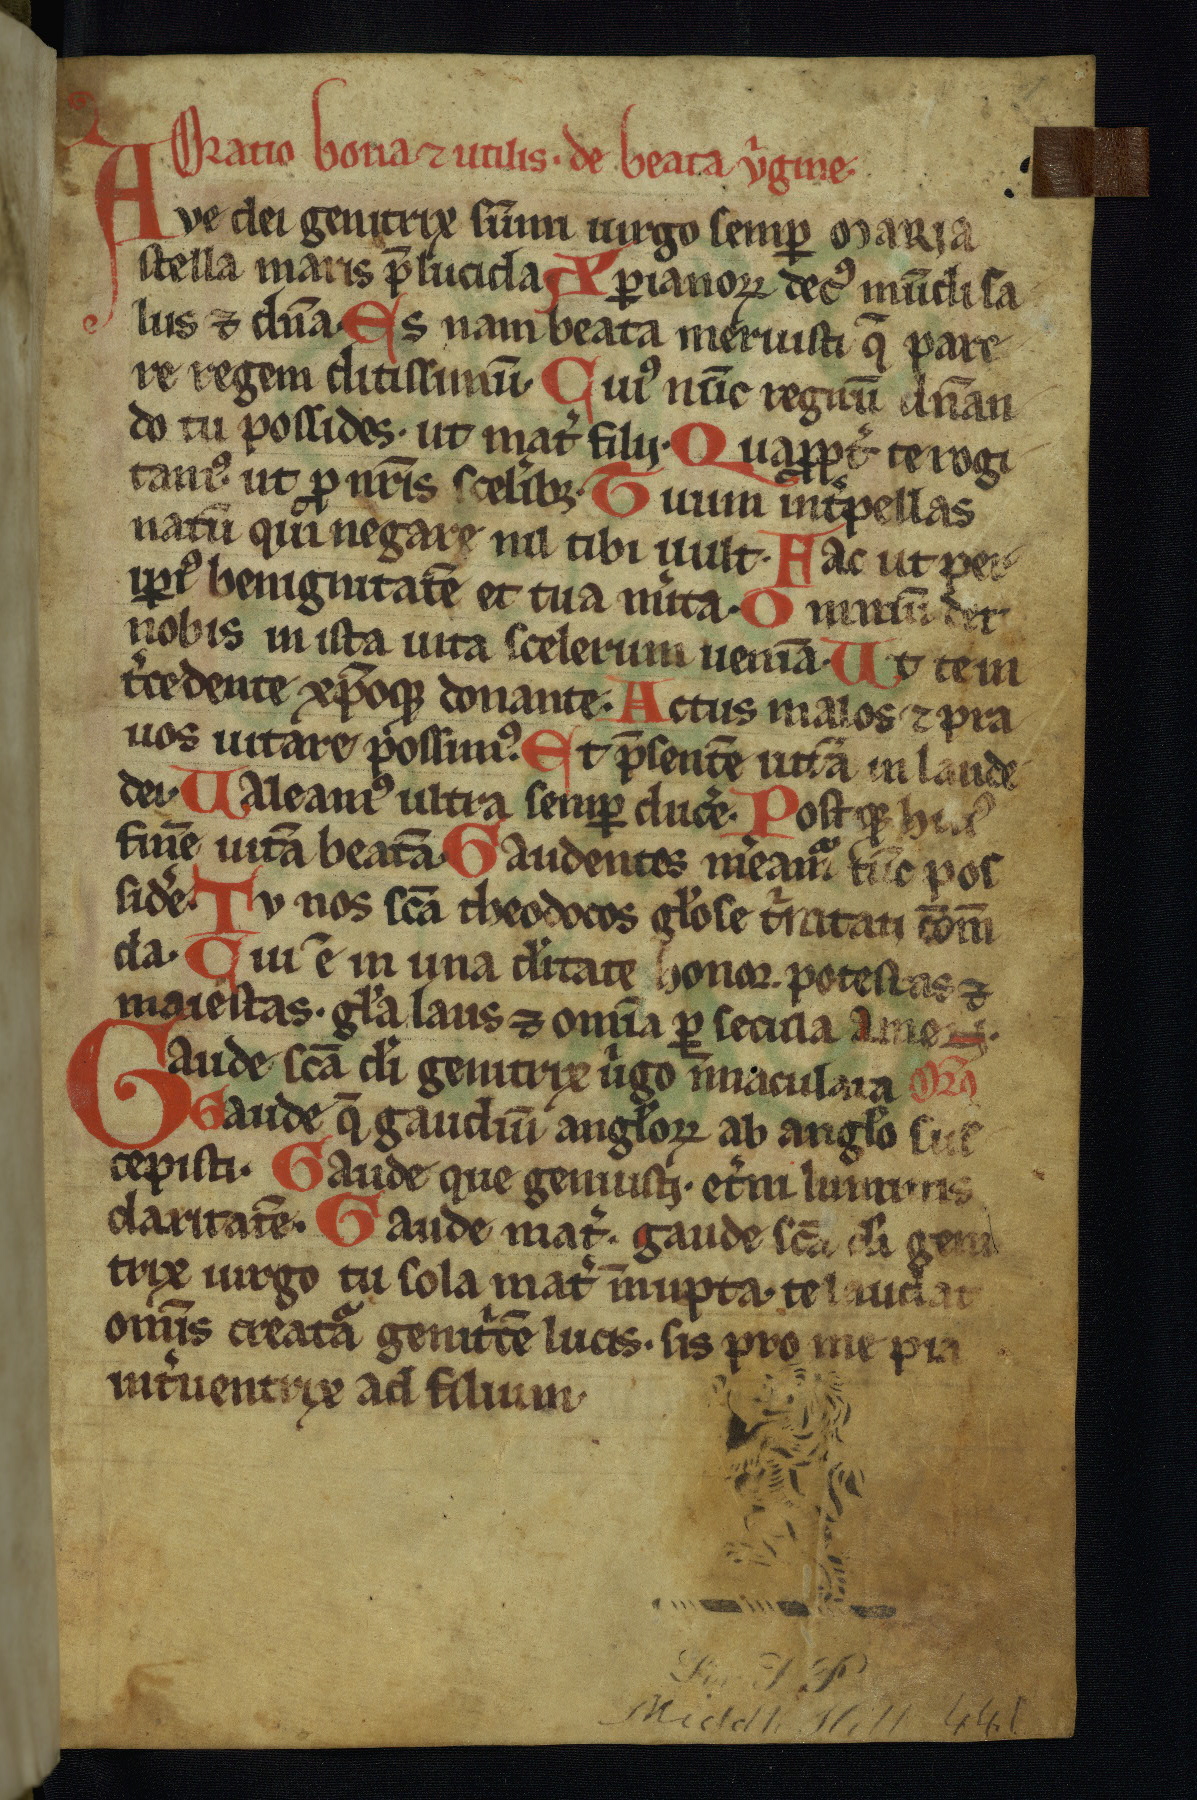 Oratio bona ⁊ utilis · de beata v̓gine ·
Ave dei genitrix sūmi uirgo semꝑ MARIA
stella maris p̄lucida Xp̄ianoꝝ decꝰ mūdi sa
lus ⁊ dn̄a · Es nam beata meruisti q̄ pare
re regem ditissimū · Cuiꝰ nūc regnū dn̄an
do tu possides · ut mat̓ filij · Quaꝓpt̓ te rogi
tamꝰ · ut ꝓ nr̄is scelib̓ꝫ · Tuum int̓pellas
natū qui negare nil tibi uult · Fac ut per
ipiꝰ benignitatē et tua mi̓ta · Omniū det
nobis in ista uita scelerum ueniā · Ut te in
t̓cedente xp̄oqꝫ donante · Actus malos ⁊ pra
uos uitare possimꝰ · Et p̄sentē uitā in laude
dei · UAleamꝰ ultra semꝑ duce̓ · Postqꝫ huiꝰ
finē uitā beatā · Gaudentes me̓amur tūc pos
side̓ · Tv nos sc̄a theodocos glo̓se t̓nitati cōm̄
da · Cui ē in una di̓tate honor · potestas ⁊
maiestas · gl̓a laus ⁊ omīa ꝑ secula Amen ·
Gaude sc̄a di̓ genitrix u̓go īmaculata Or̄o
Gaude q̄ gaudiū anglo̓ꝝ ab anglo̓ sus
cepisti · Gaude que genuisti · et̓ni luminis
claritatē · Gaude mat̓ · gaude sc̄a di̓ geni
trix uirgo tu sola mat̓ īnupta · te laudat
omīs creata genitcē lucis · sis pro me pia
int̓uentrix ad filium ·
Sir T P
Middle Hill 441